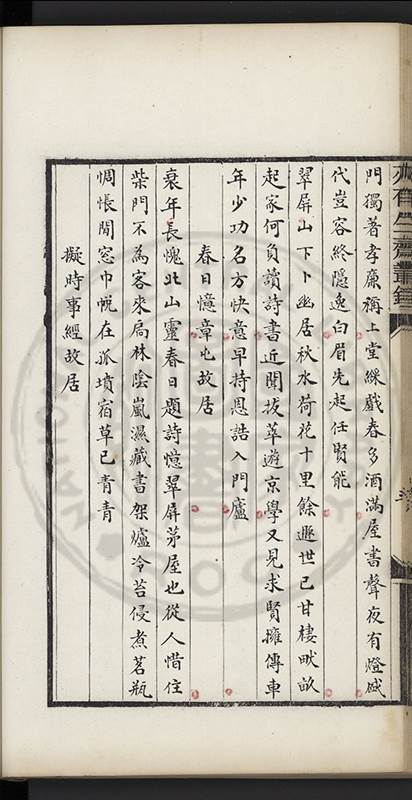 門獨著孝廉稱上堂綵戲春多酒滿屋書聲夜有燈盛
代豈容終隱逸白眉先起任賢能
翠屏山下卜幽居秋水荷花十里餘遯世已甘棲畎畝
起家何負讀詩書近聞拔萃遊京學又見求賢擁傳車
年少功名方快意早持恩誥入門廬
春日憶章屯故居
衰年長愧北山靈春日題詩憶翠屏茅屋也從人借住
柴門不為客來扃林陰嵐濕藏書架爐冷苔侵煮茗瓶
惆悵閒窓巾帨在孤墳宿草已青青
擬時事經故居